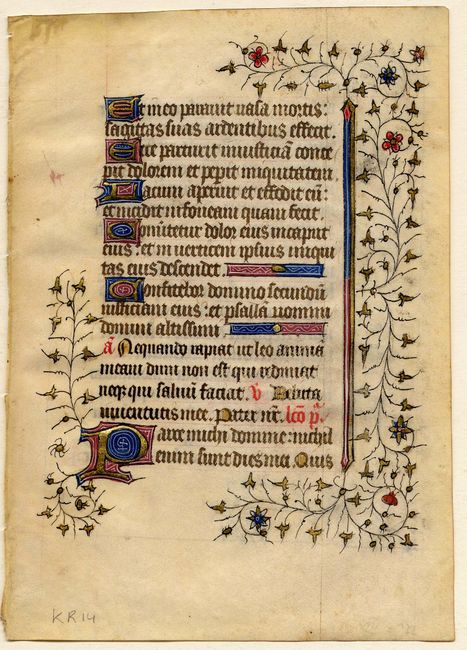 Et in eo parauit uasa mortis:
sagittas suas ardentibus effecit.
Ecce parturit iniusticiā conce
pit dolorem et pepit iniquitatem
Lacum aperuit et effodit eū:
et incidit in foueam quam fecit.
Conūtetur dolor eius in caput
eius: et in uerticem ipsius iniqui
tas eius descendet
Confitebor domino secundū
iusticiam eius: et psallā nomini
domini altissimi
a͞ Nequando rapiat ut leo animā
meam dum non est qui redimat
neqꝫ qui saluū faciat. v̄ Delicta
iuuentutis mee. Pater nr̄. lc̄o p̄.
Parce michi domine: nichil
enim sunt dies mei. Quis
KR14